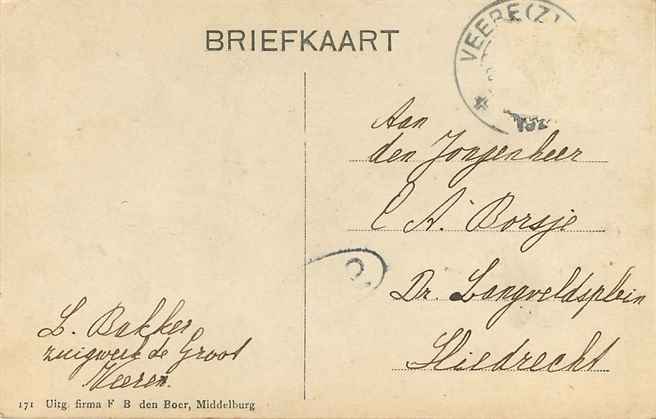 BRIEFKAART
VEERE (Z)
Aan
den Jongenheer
C A. Borsje
Dr. Langveldsplein
Sliedrecht
L. Bakker
zuigwerk de Groot
Veeren.
171 Uitg. firma F B den Boer, Middelburg